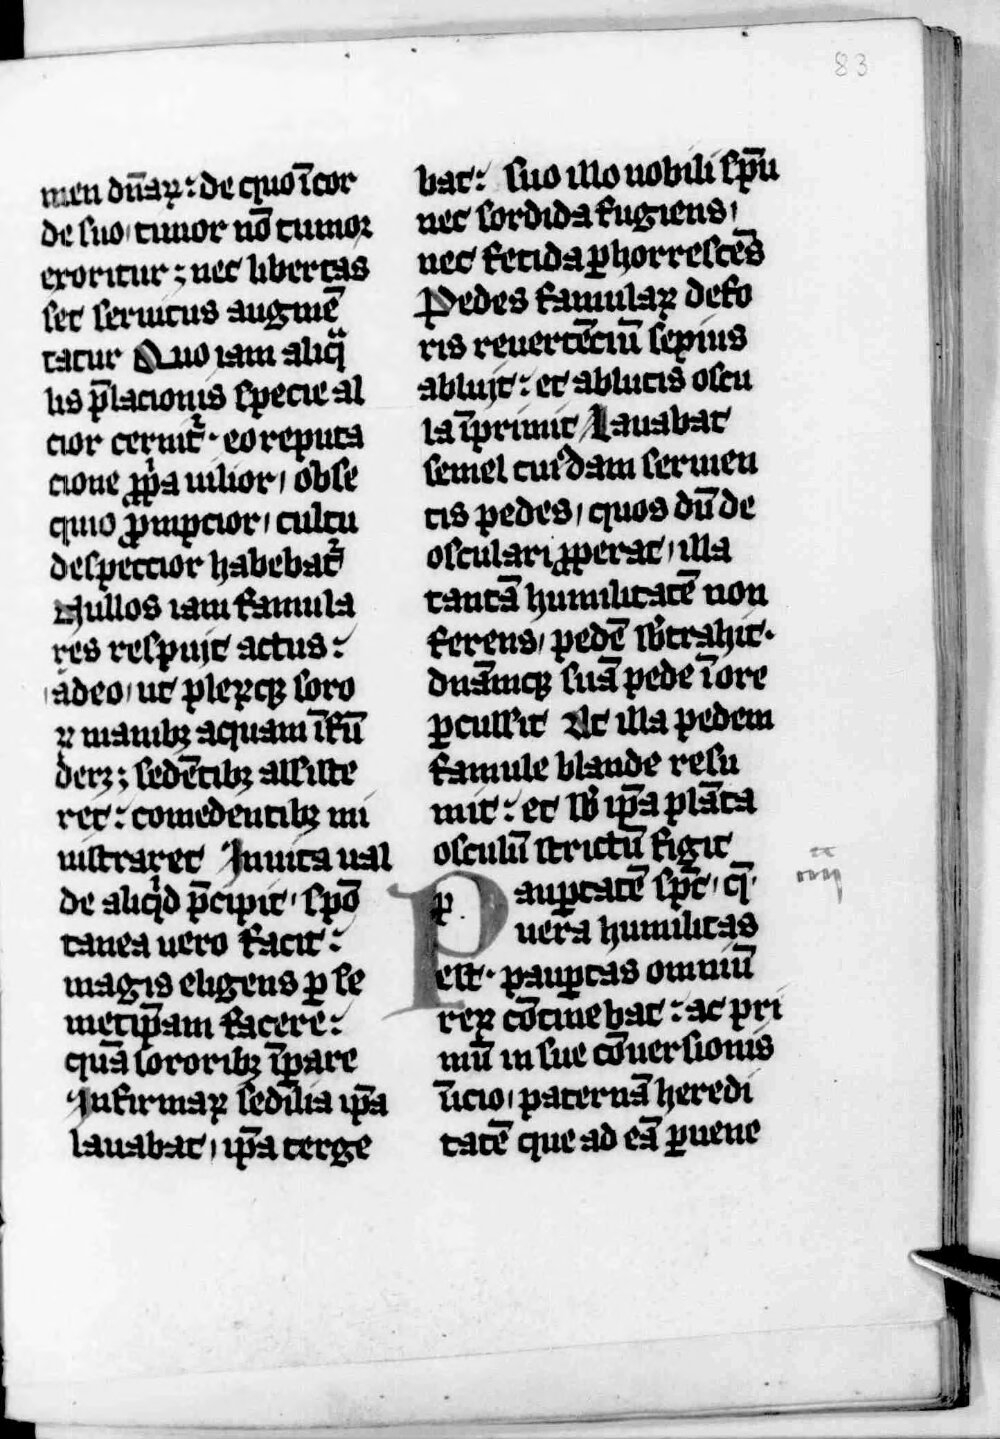 83
men dn̄aꝝ: de quo ī cor
de suo, timor nō tumor
exoritur; nec libertas
set seruitus augmē
tatur Quo iam aliqͣ
lis p̄lacionis specie al
cior cernit᷑. eo reputa
cione ꝓpͥa uilior, obse
quio ꝓmpcior, cultu
despectior habebat᷑
Nullos iam famula
res respuit actus:
adeo, ut pleꝝqꝫ soro
ꝝ manibꝫ aquam īfū
derꝫ; sedētibꝫ assiste
ret: comedentibꝫ mi
nistraret Inuita ual
de aliqͥd p̄cipit, spō
tanea uero facit:
magis eligens ꝑ se
metip̄am facere:
quā sororibꝫ īpare
Infirmaꝝ sedilia ip̄a
lauabat, ip̄a terge
bat: suo illo nobili sp̄u
nec sordida fugiens,
nec fetida ꝑhorrescēs
Pedes famulaꝝ defo
ris reuertēciū sepius
abluit: et ablutis oscu
la īprimit Lauabat
semel cuiꝰdam seruien
tis pedes, quos dū de
osculari ꝓperat, illa
tantā humilitatē non
ferens, pedē sb̄trahit.
dnāmqꝫ suā pede ī ore
ꝑcussit At illa pedem
famule blande resu
mit: et sb̄ ip̄a plāta
osculū strictū figit
p
Pauꝑtatē sp̄c, q̄
uera humilitas
est. pauꝑtas omniū
reꝝ cōtinebat: ac pri
mū in sue cōuersionis
īicio, paternā heredi
tatē que ad eā ꝑuene